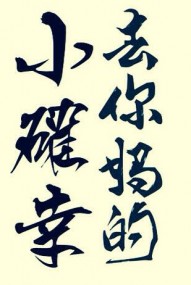 去你媽的
小確幸